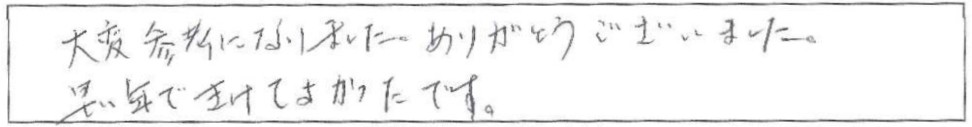 大変参考になりました。ありがとうございました。
早い年できけてよかったです。